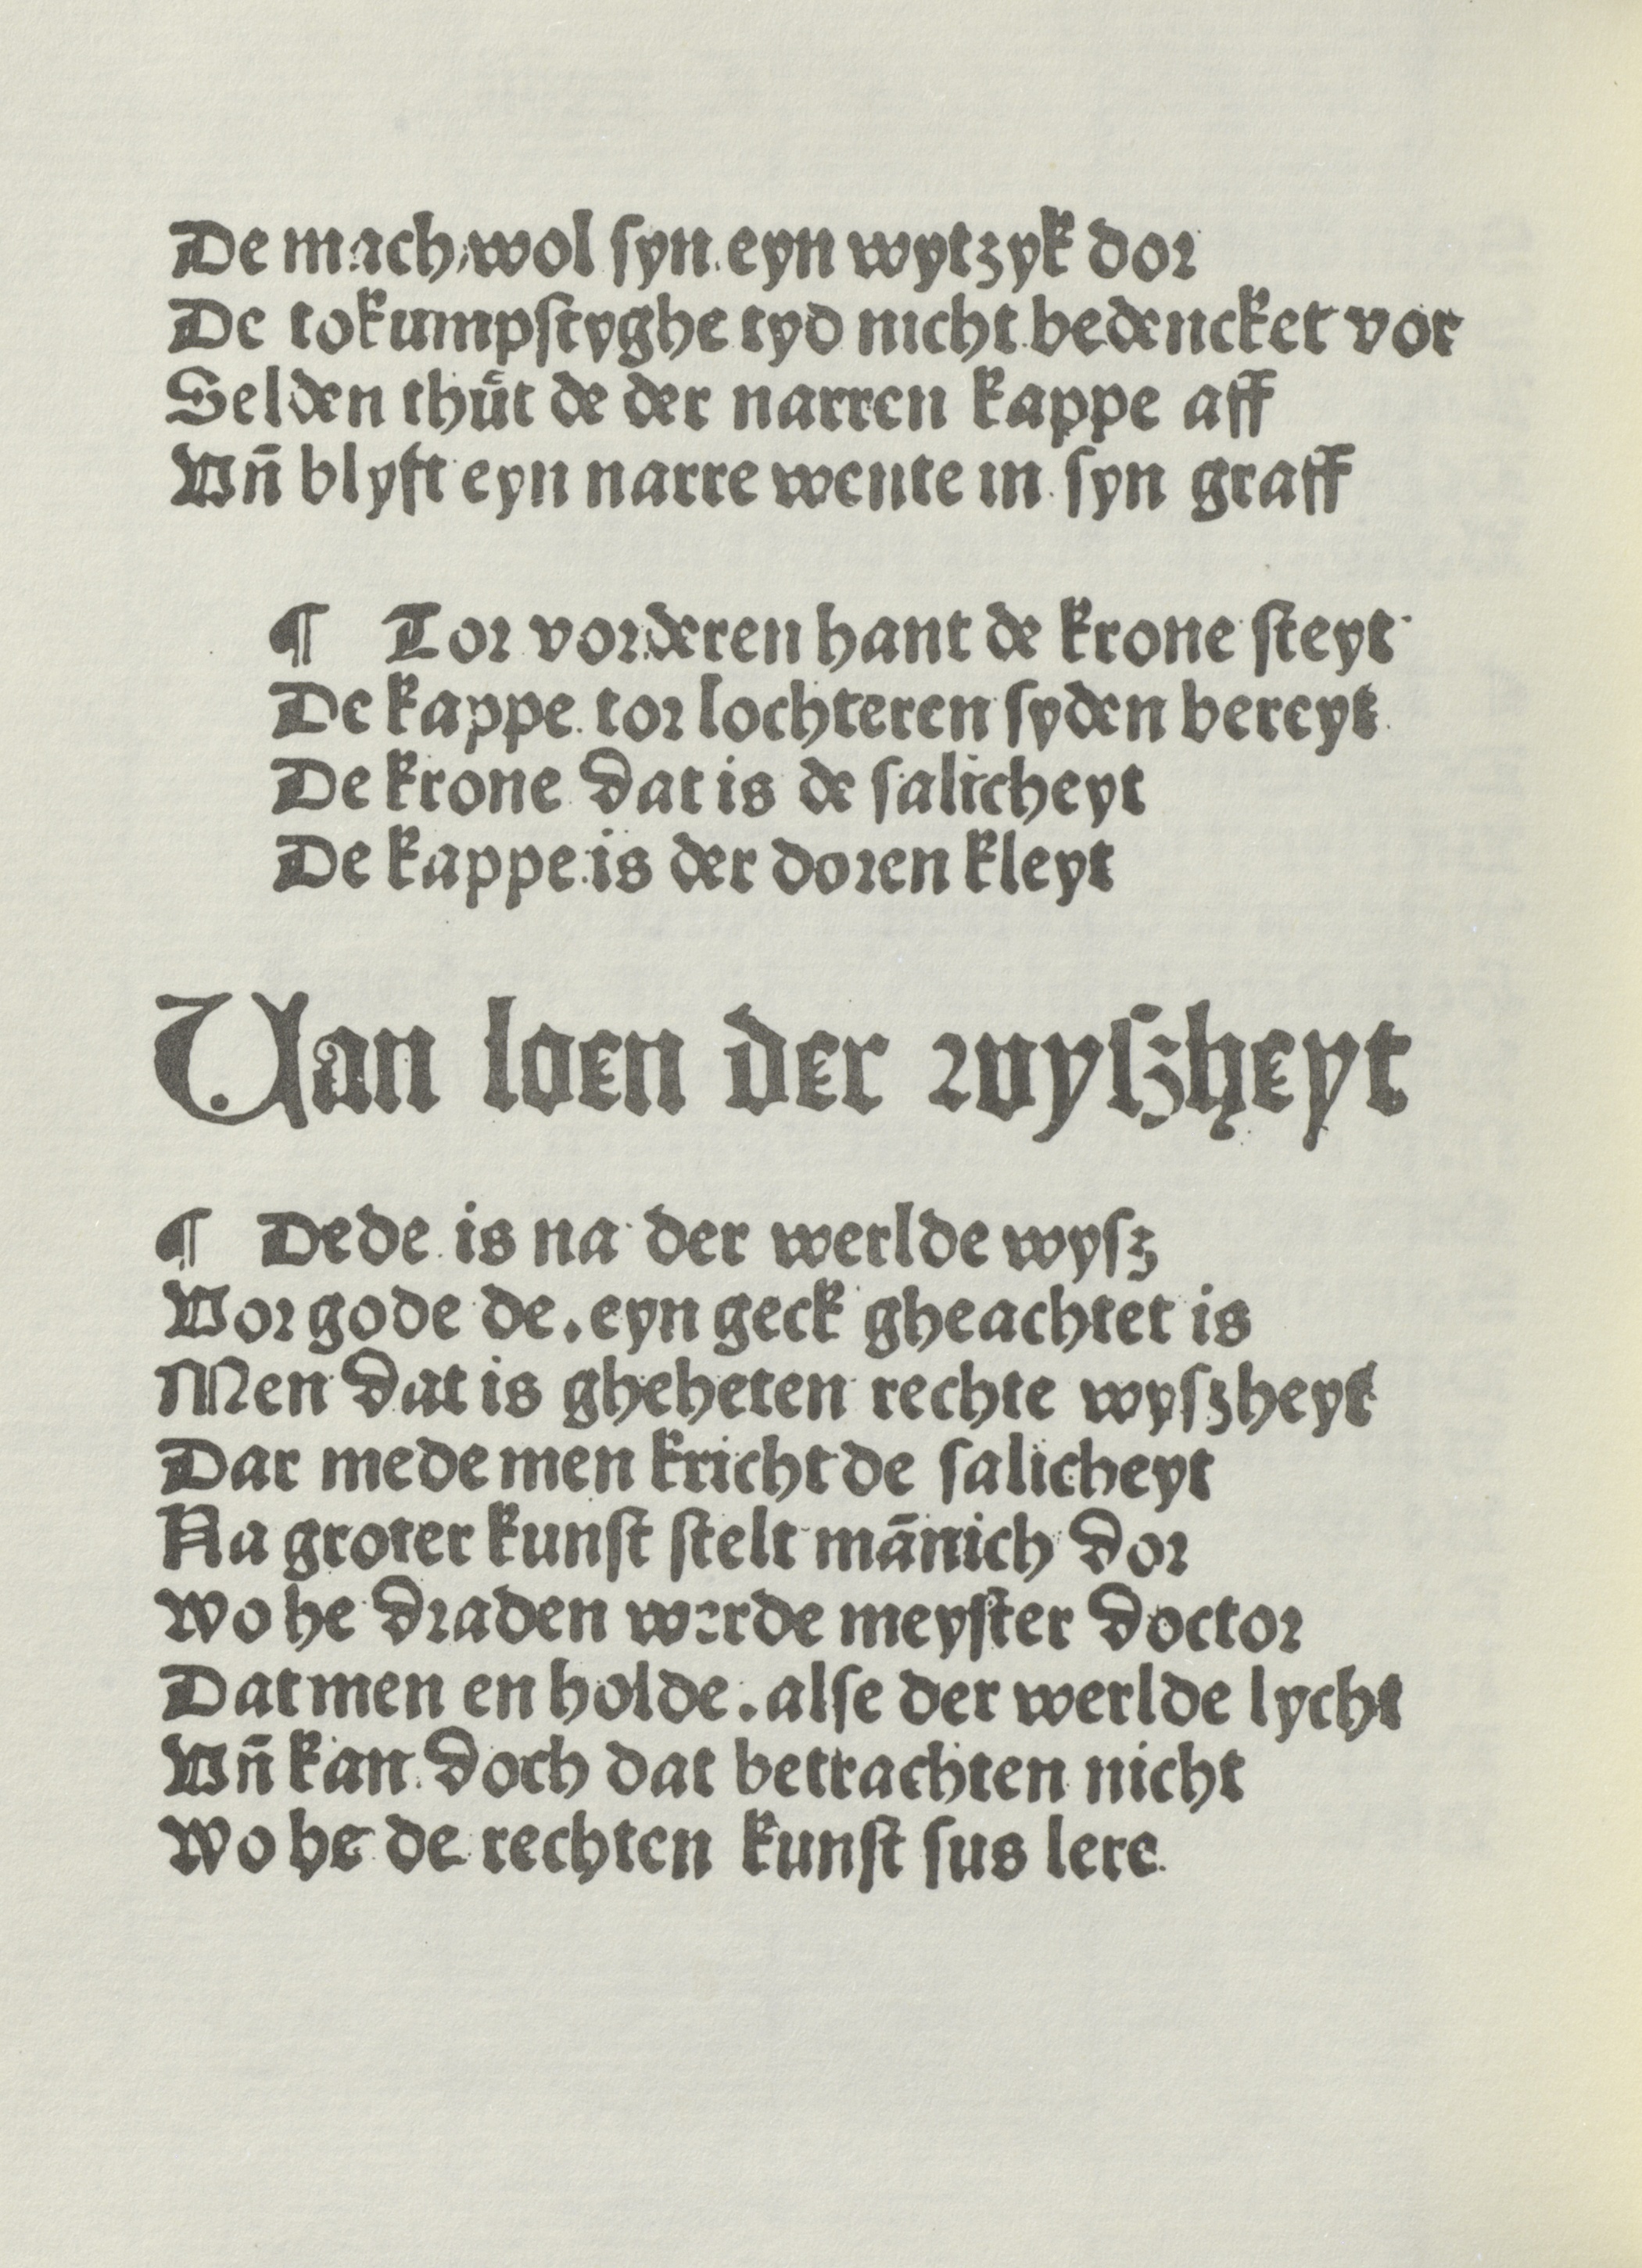 De mach wol ſyn eyn wytzyk dor
De tokumpſtyghe tyd nicht bedencket vor
Selden thuͤt de der narren kappe aff
Vn̄ blyft eyn narre wente in ſyn graff
¶ Tor vorderen hant de krone ſteyt
De kappe tor lochteren ſyden bereyt
De krone dat is de ſalicheyt
De kappe is der doren kleyt
Uan loen der wyſzheyt
¶ Dede is na der werlde wyſz
Vor gode de. eyn geck gheachtet is
Men dat is gheheten rechte wyſzheyt
Dar mede men kricht de ſalicheyt
Na groter kunſt ſtelt mānich dor
Wo he draden werde meyſter doctor
Dat men en holde. alſe der werlde lycht
Vn̄ kan doch dat betrachten nicht
Wo he de rechten kunſt ſus lere